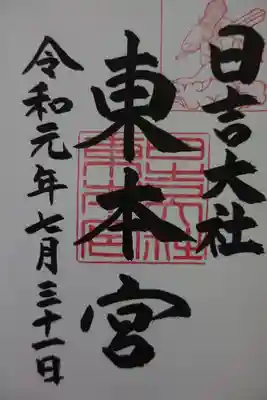 日吉大社
東本宮
令和元年七月三十一日